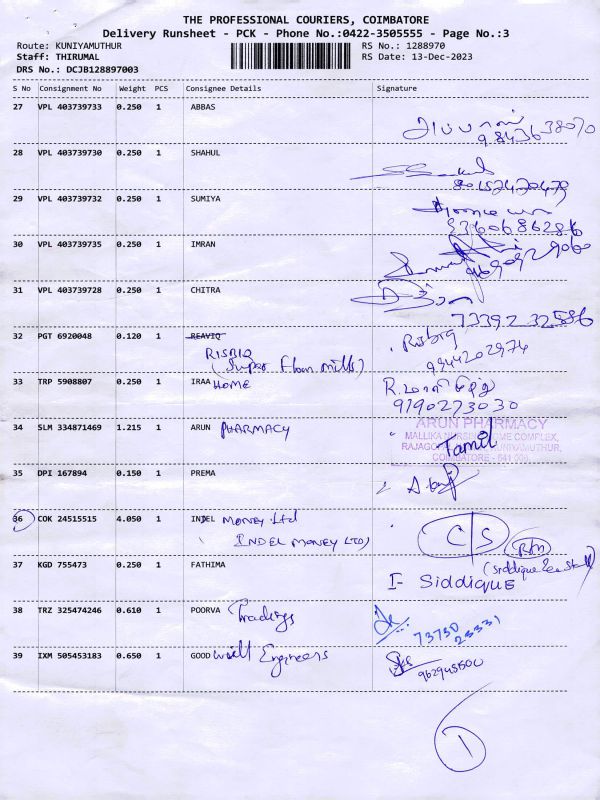 THE PROFESSIONAL COURIERS, COIMBATORE
Delivery Runsheet - PCK - Phone No.:0422-3505555 - Page No.:3
Route: KUNIYAMUTHUR RS No.: 1288970
Staff: THIRUMAL RS Date: 13-Dec-2023
DRS No.: DCJB128897003
S No Consignment No Weight PCS Consignee Details Signature
27 VPL 403739733 0.250 1 ABBAS
அப்பாஸ்
9843638070
28 VPL 403739730 0.250 1 SHAHUL
29 VPL 403739732 0.250 1 SUMIYA
9360686286
30 VPL 403739735 0.250 1 IMRAN
31 VPL 403739728 0.250 1 CHITRA
7339232586
32 PGT 6920048 0.120 1 REAVIQ Risbiq
RISBIQ 9944202974
(Super Flour mills)
33 TRP 5908807 0.250 1 IRAA HOME
9190273030
34 SLM 334871469 1.215 1 ARUN PHARMACY Tamil
ARUN PHARMACY
MALLIKA NURSING HOME COMPLEX,
KUNIYAMUTHUR,
COIMBATORE - 641 008.
35 DPI 167894 0.150 1 PREMA
36 COK 24515515 4.050 1 INDEL MONEY Ltd C/S
(INDEL MONEY LTD) Rtn
37 KGD 755473 0.250 1 FATHIMA
I- SIDDIQUE
38 TRZ 325474246 0.610 1 POORVA Tradings
73730 23331
39 IXM 505453183 0.650 1 GOOD will Engineers
9629455500
1